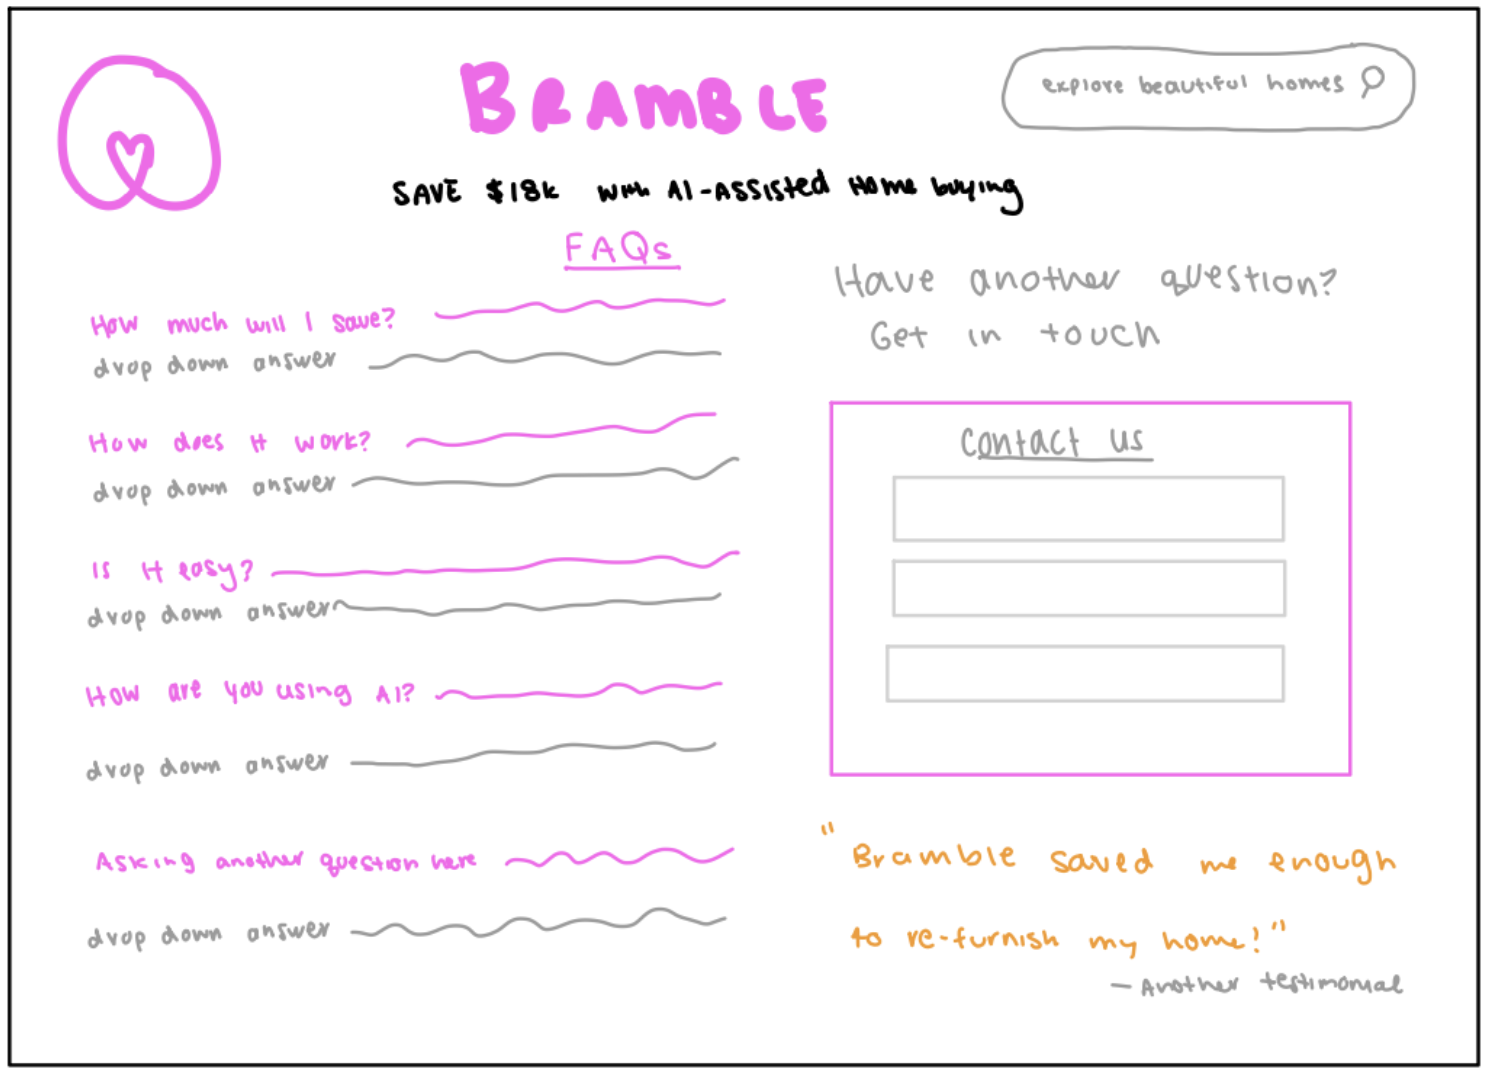 BRAMBLE
explore beautiful homes
SAVE $18k with AI-ASSisted Home buying
FAQs
How much will I save?
drop down answer
How does it work?
drop down answer
Is it easy?
drop down answer
How are you using AI?
drop down answer
Asking another question here
drop down answer
Have another question?
Get in touch
Contact us
"Bramble saved me enough
to re-furnish my home!"
— Another testimonial